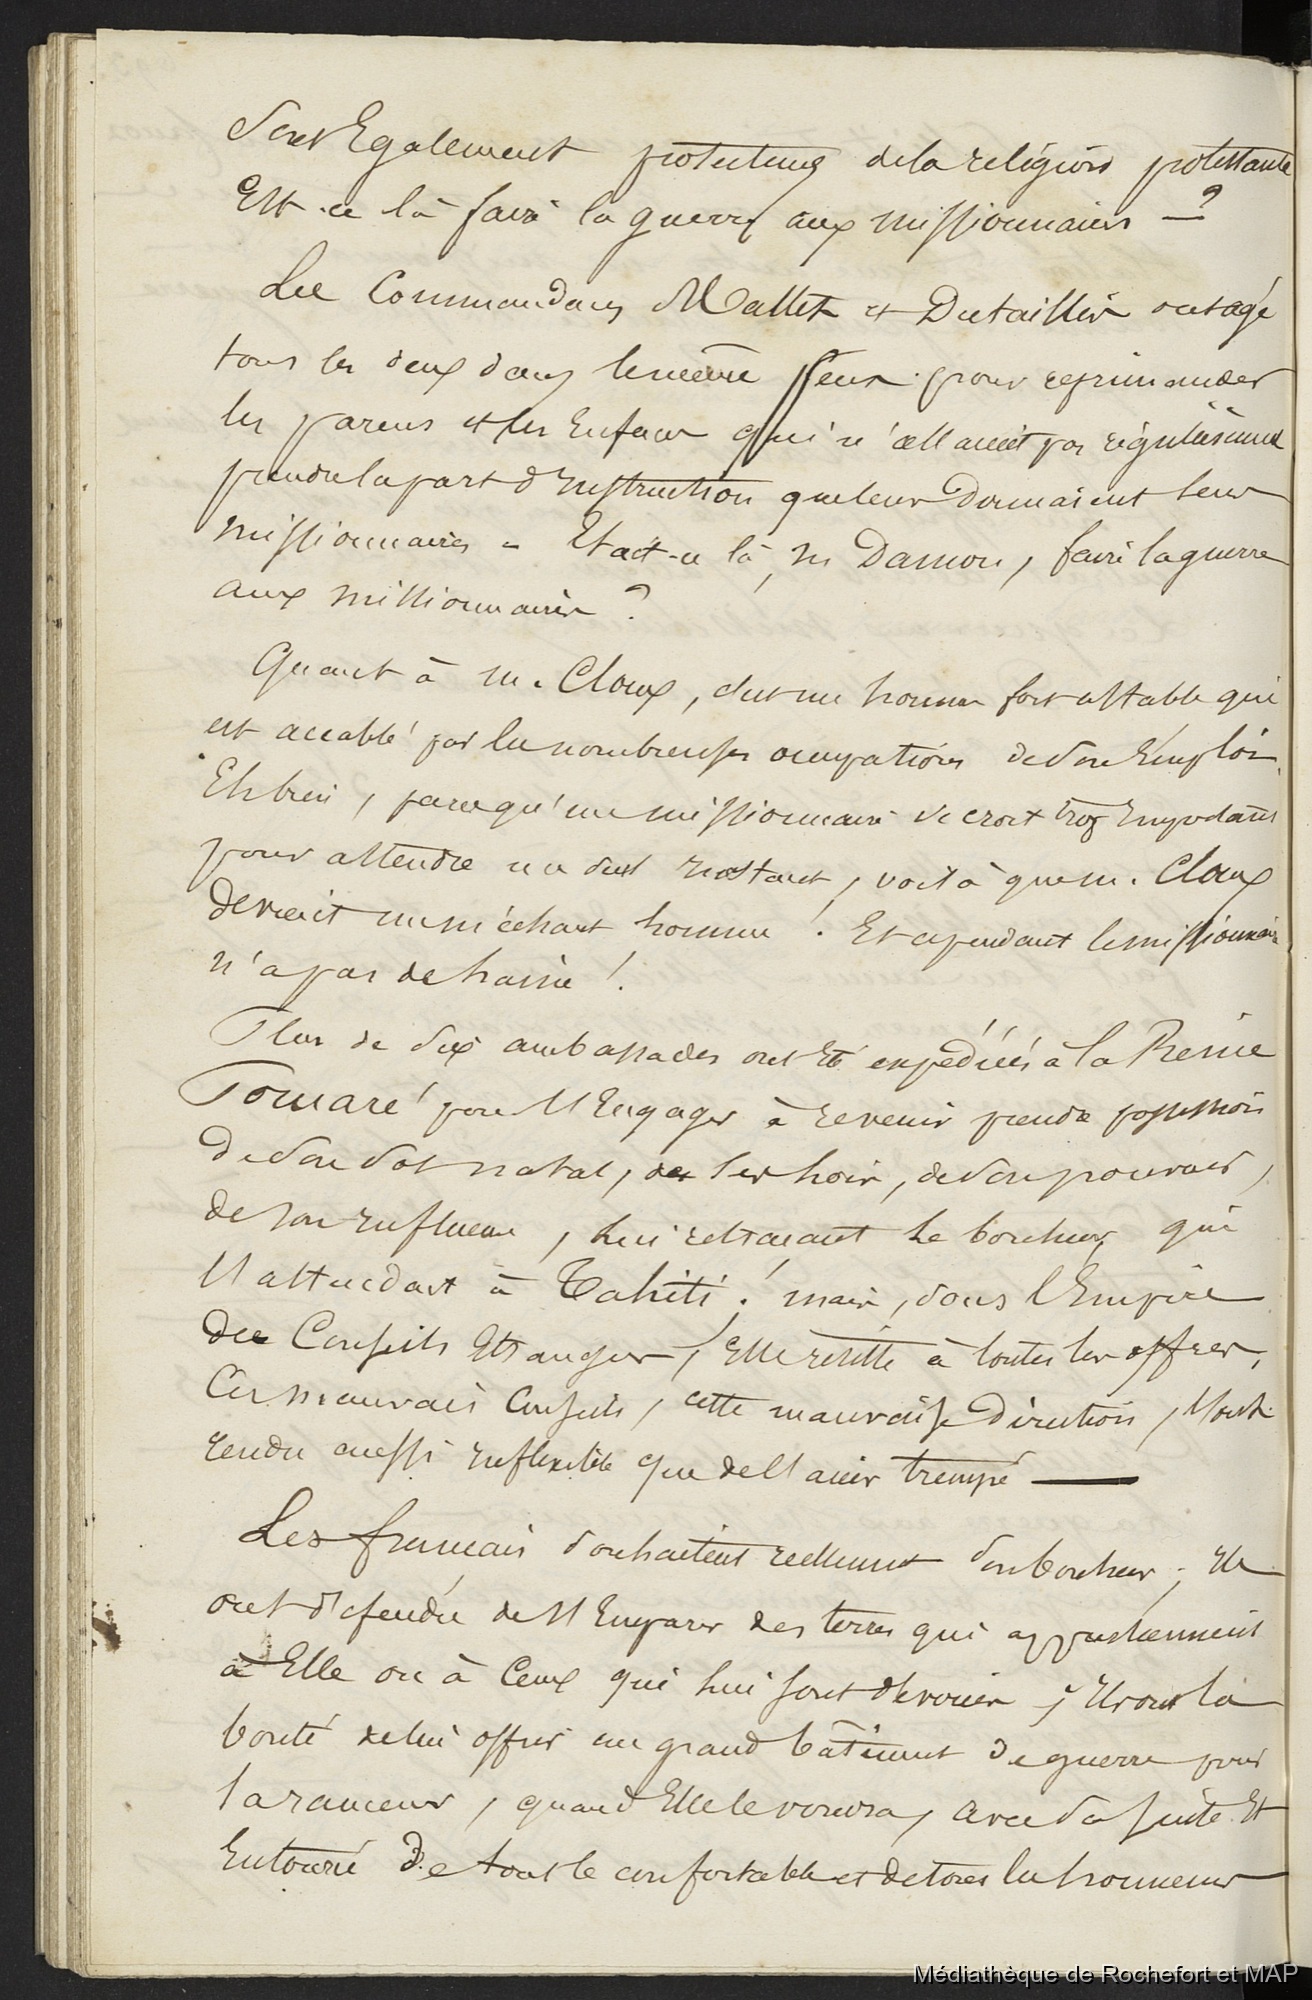 sont Egalement protecteurs de la religion protestante
Est-ce là faire la guerre aux missionnaires — ?
Les Commandans Mallet et Dutaillis ont agé
tous les deux dans le même sens pour reprimander
les parens et les Enfans qui n'allaient pas régulièrement
prendre la part d'Instruction que leur Donnaient leurs
missionnaires – Etait-ce là, M Damon, faire la guerre
aux missionnaires ?
Quant à M. Cloux, c'est un homme fort affable qui
est accablé par les nombreuses occupations de son Emploi.
Eh bien, parcequ'un missionnaire se croit trop Important
pour attendre un seul Instant, voilà que M. Cloux
devient un méchant homme ! Et cependant le missionnaire
n'a pas de haine !
Plus de dix ambassades ont Eté expédiées à la Reine
Pomaré pour l'Engager à revenir prendre possession
de son sol natal, de ses hoirs, de son pouvoir,
de son Influence, lui retraçant le bonheur qui
l'attendait à Tahiti ! mais, sous l'Empire
des Conseils Etrangers, Elle résiste à toutes les offres,
Ces mauvais Conseils, cette mauvaise Direction, l'ont
rendu aussi Inflexible que de l'acier trempé —
Les français souhaitent réellement son bonheur ; Ils
ont défendu de s'Emparer des terres qui appartiennent
à Elle ou à Ceux qui lui sont dévoués ; Ils ont la
bonté de lui offrir un grand bâtiment de guerre pour
la ramener, quand Elle le voudra, avec sa suite Et
Entouré De tout le confortable et de tous les honneurs
Médiathèque de Rochefort et MAP